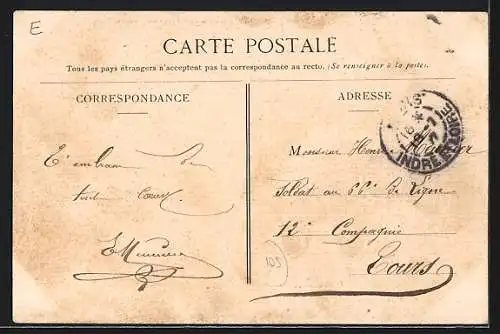 E
CARTE POSTALE
Tous les pays étrangers n'acceptent pas la correspondance au recto. (Se renseigner à la poste).
CORRESPONDANCE
ADRESSE
INDRE ET LOIRE
Monsieur Henri
T'embrasse de
tout cœur
Soldat au 66e de Ligne
12e Compagnie
Tours
105